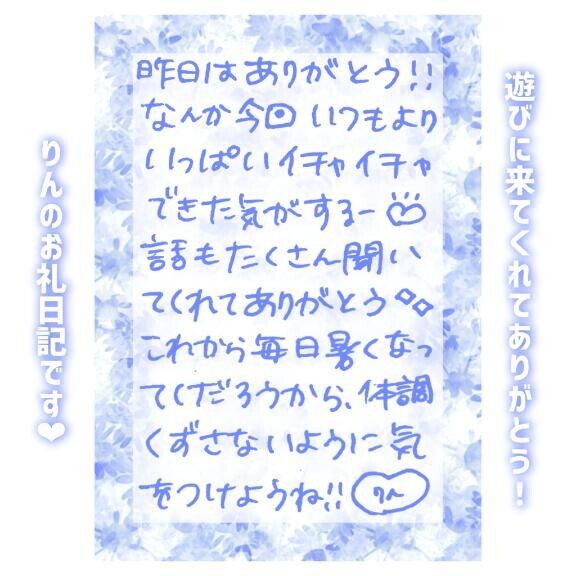 遊びに来てくれてありがとう!
昨日はありがとう!!
なんか今回いつもより
いっぱいイチャイチャ
できた気がするー
話もたくさん聞い
てくれてありがとう
これから毎日暑くなっ
てくだろうから、体調
くずさないように気
をつけようね!! りん
りんのお礼日記です❤